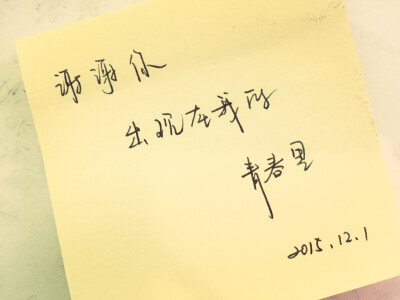 谢谢你
出现在我的
青春里
2015.12.1